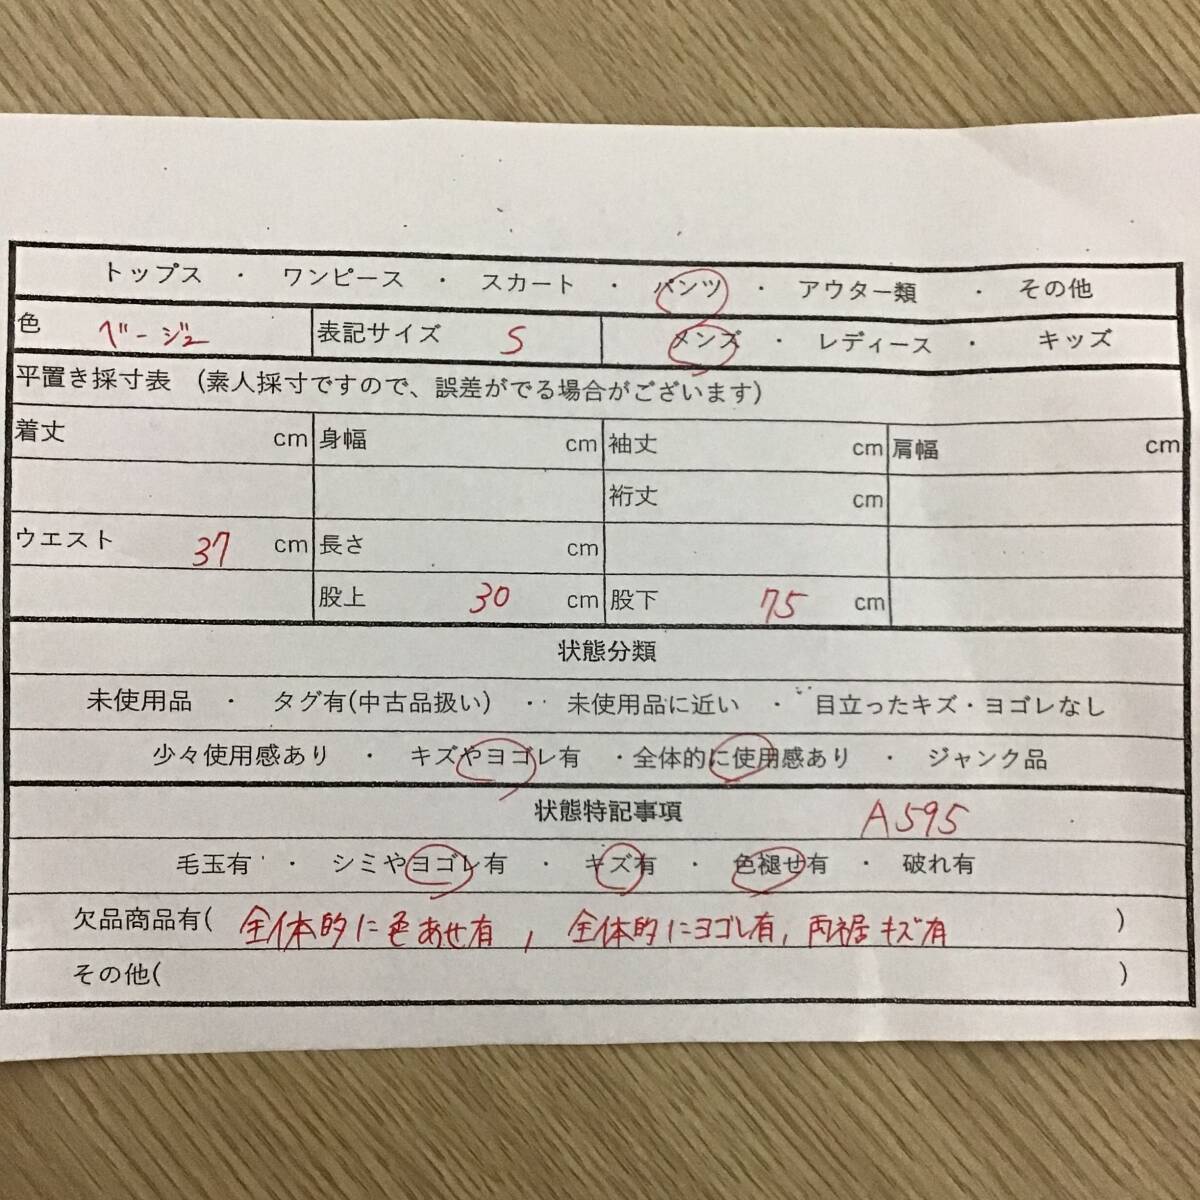 トップス ・ ワンピース ・ スカート ・ パンツ ・ アウター類 ・ その他
色 ベージュ 表記サイズ S メンズ ・ レディース ・ キッズ
平置き採寸表 (素人採寸ですので、誤差がでる場合がございます)
着丈 cm 身幅 cm 袖丈 cm 肩幅 cm
裄丈 cm
ウエスト 37 cm 長さ cm
股上 30 cm 股下 75 cm
状態分類
未使用品 ・ タグ有(中古品扱い) ・ 未使用品に近い ・ 目立ったキズ・ヨゴレなし
少々使用感あり ・ キズやヨゴレ有 ・全体的に使用感あり ・ ジャンク品
状態特記事項 A595
毛玉有 ・ シミやヨゴレ有 ・ キズ有 ・ 色褪せ有 ・ 破れ有
欠品商品有( 全体的に色あせ有, 全体的にヨゴレ有, 両裾キズ有 )
その他( )